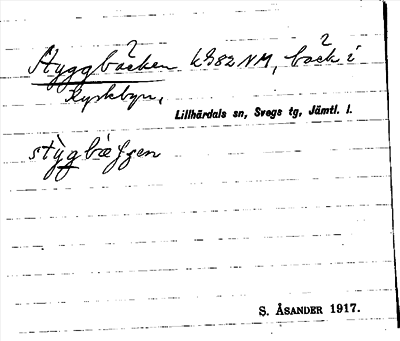 Styggbäcken k782NM, bäck i
Kyrkbyn,
Lillhärdals sn, Svegs tg, Jämtl. l.
S. ÅSANDER 1917.